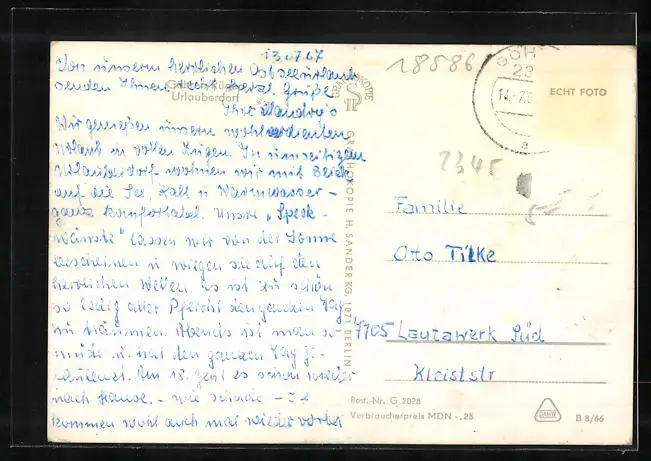 13.7.67
Von unserm herrlichen Ostseeurlaub
senden Ihnen recht herzl. Grüße
Ihre
Urlauberdorf
Wir genießen unsern wohlverdienten
Urlaub in vollen Zügen. In
Urlauberdorf wohnen wir mit Blick
auf die See, Kalt u Warmwasser -
ganz komfortabel. Unsre „Speck-
wänste" lassen wir von der Sonne
bescheinen u wiegen sie auf den
herrlichen Wellen. Es ist zu schön
so ledig aller Pflicht den ganzen Tag
zu träumen. Abends ist man so
müde u. hat den ganzen Tag ge-
faulenzt. Am 18. geht es schon wieder
nach Hause. - wie schade -
kommen wohl auch mal wieder vorbei
GRAPHOKOPIE
GRAPHOKOPIE H. SANDER KG, 1071 BERLIN
18586
23
14.-7.6
a
ECHT FOTO
2345
Familie
Otto Tilke
7705 Lautawerk Süd
Kleiststr
Best.-Nr. G 2028
Verbraucherpreis MDN -,25
B 8/66